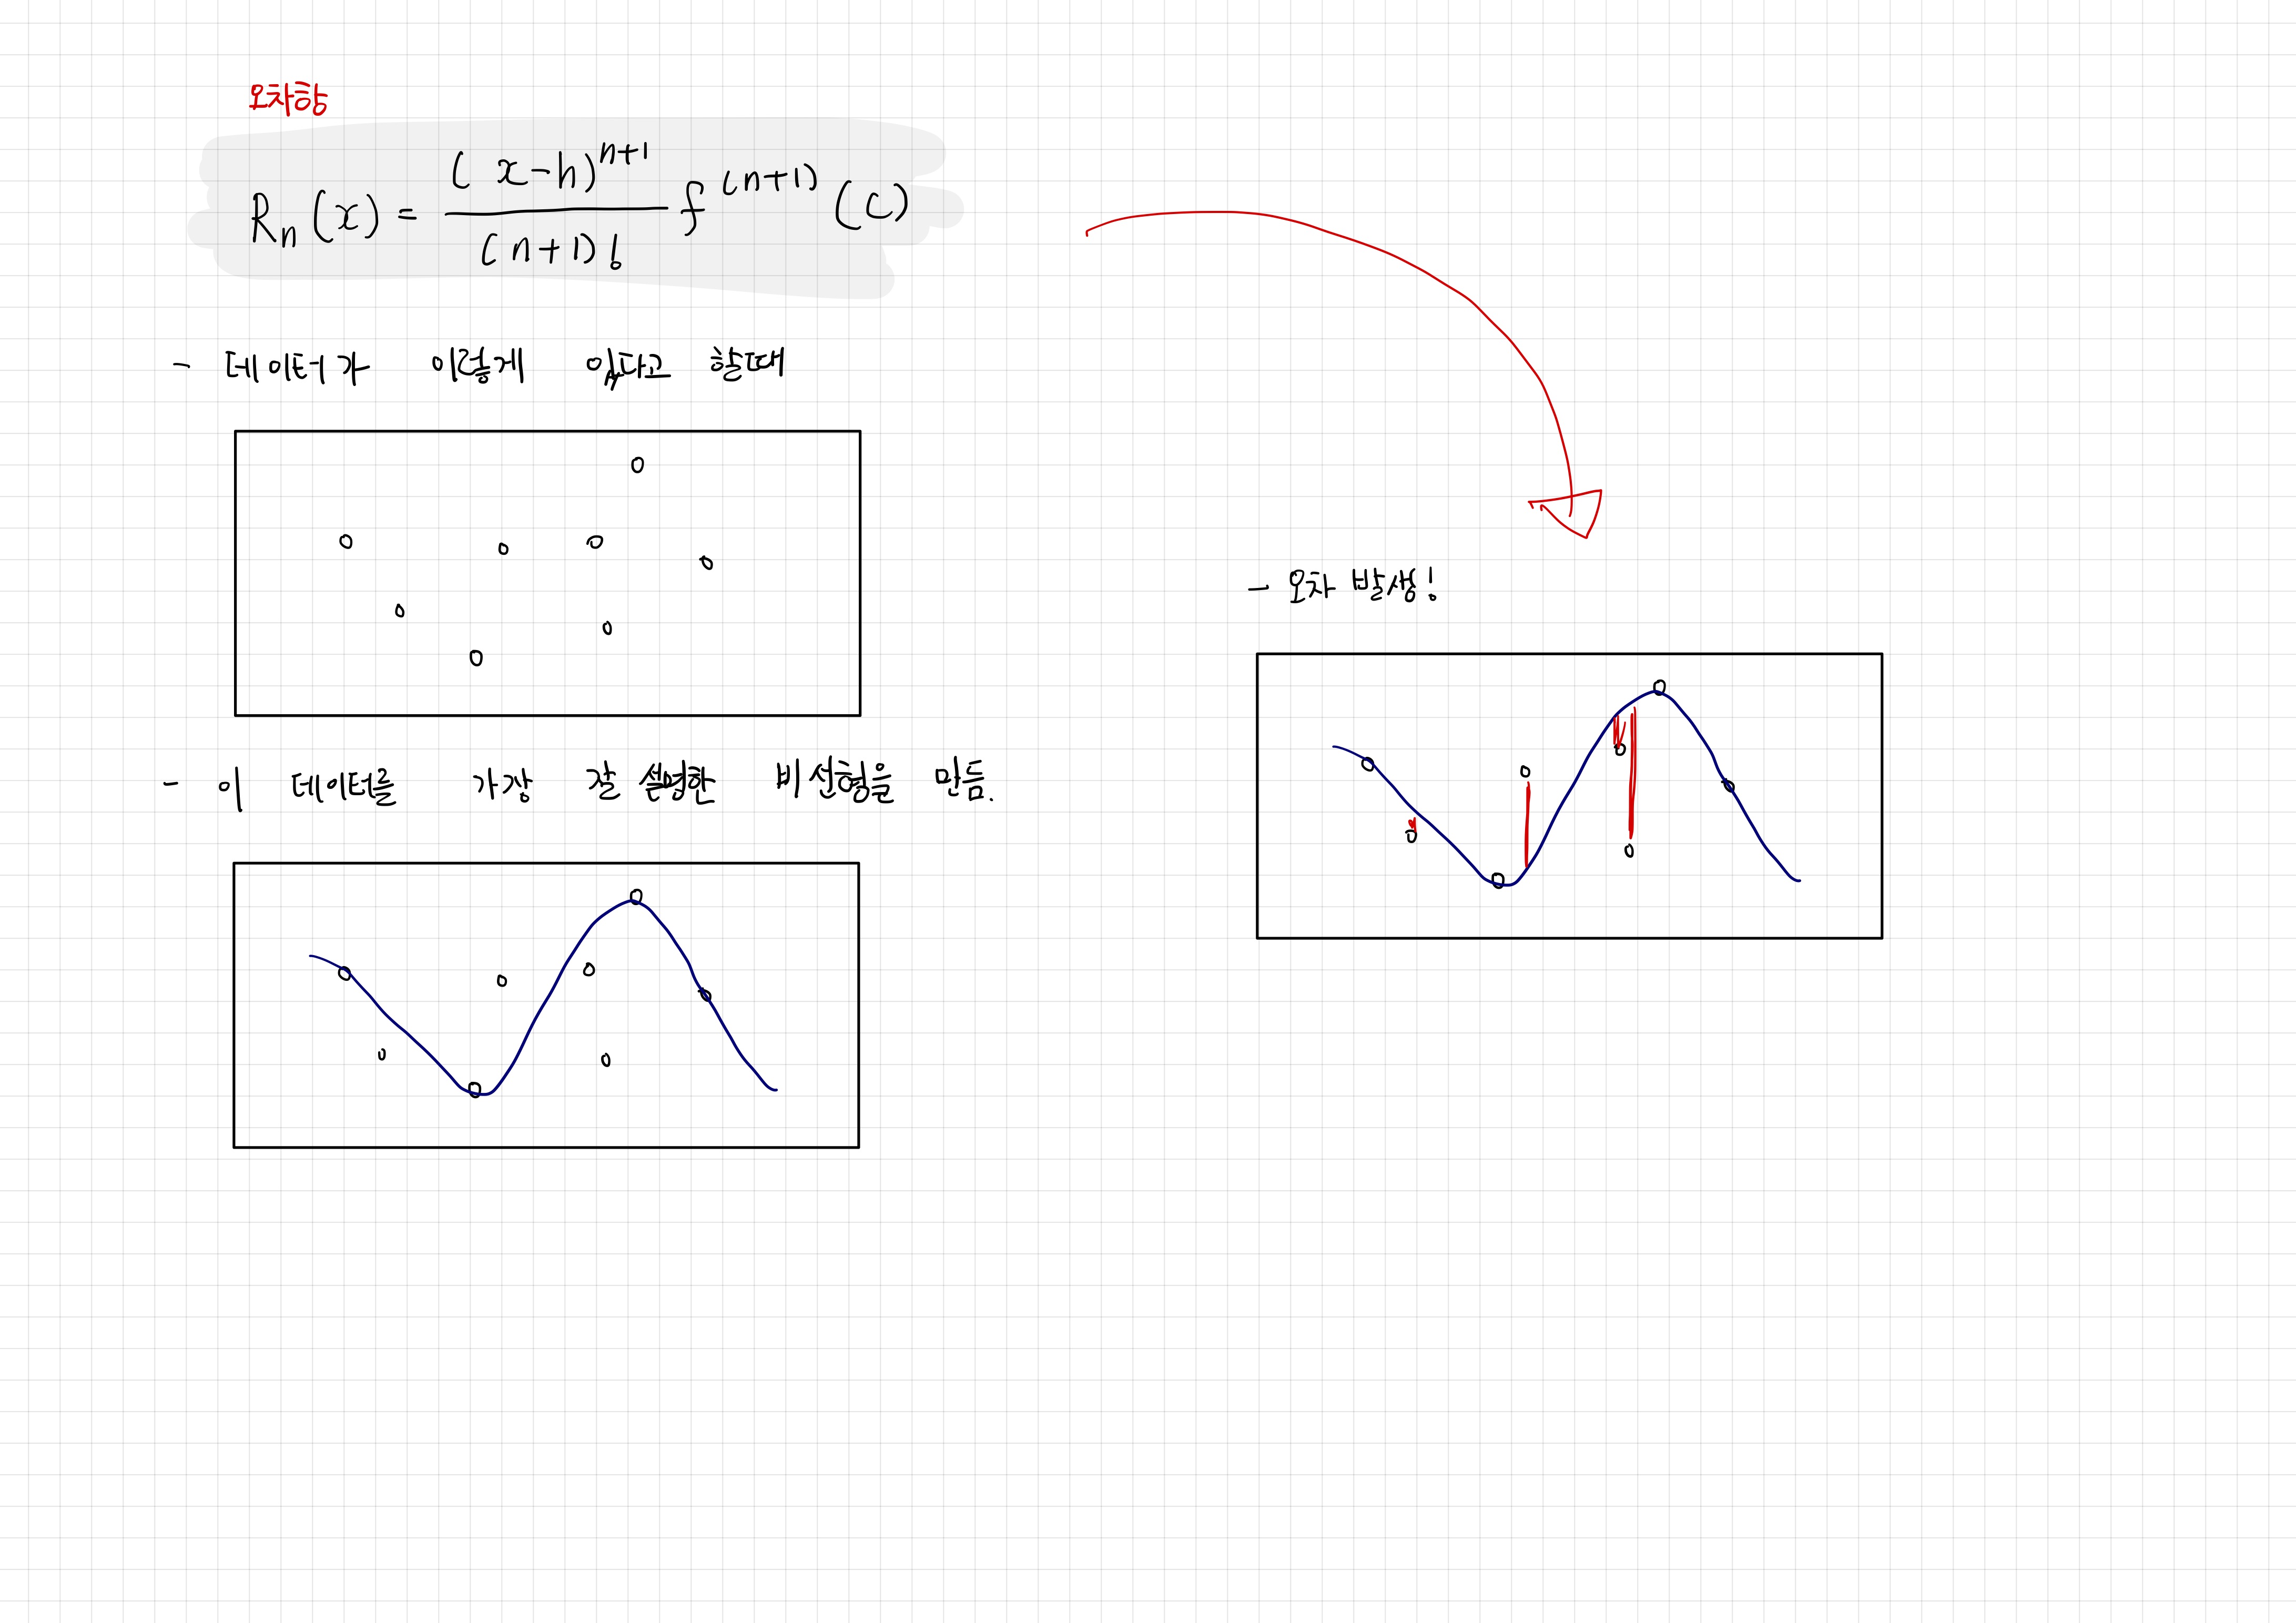 오차항
R_n(x) = \frac{(x-h)^{n+1}}{(n+1)!} f^{(n+1)}(c)
- 데이터가 이렇게 있다고 할때
- 이 데이터를 가장 잘 설명한 비선형을 만듬.
- 오차 발생!